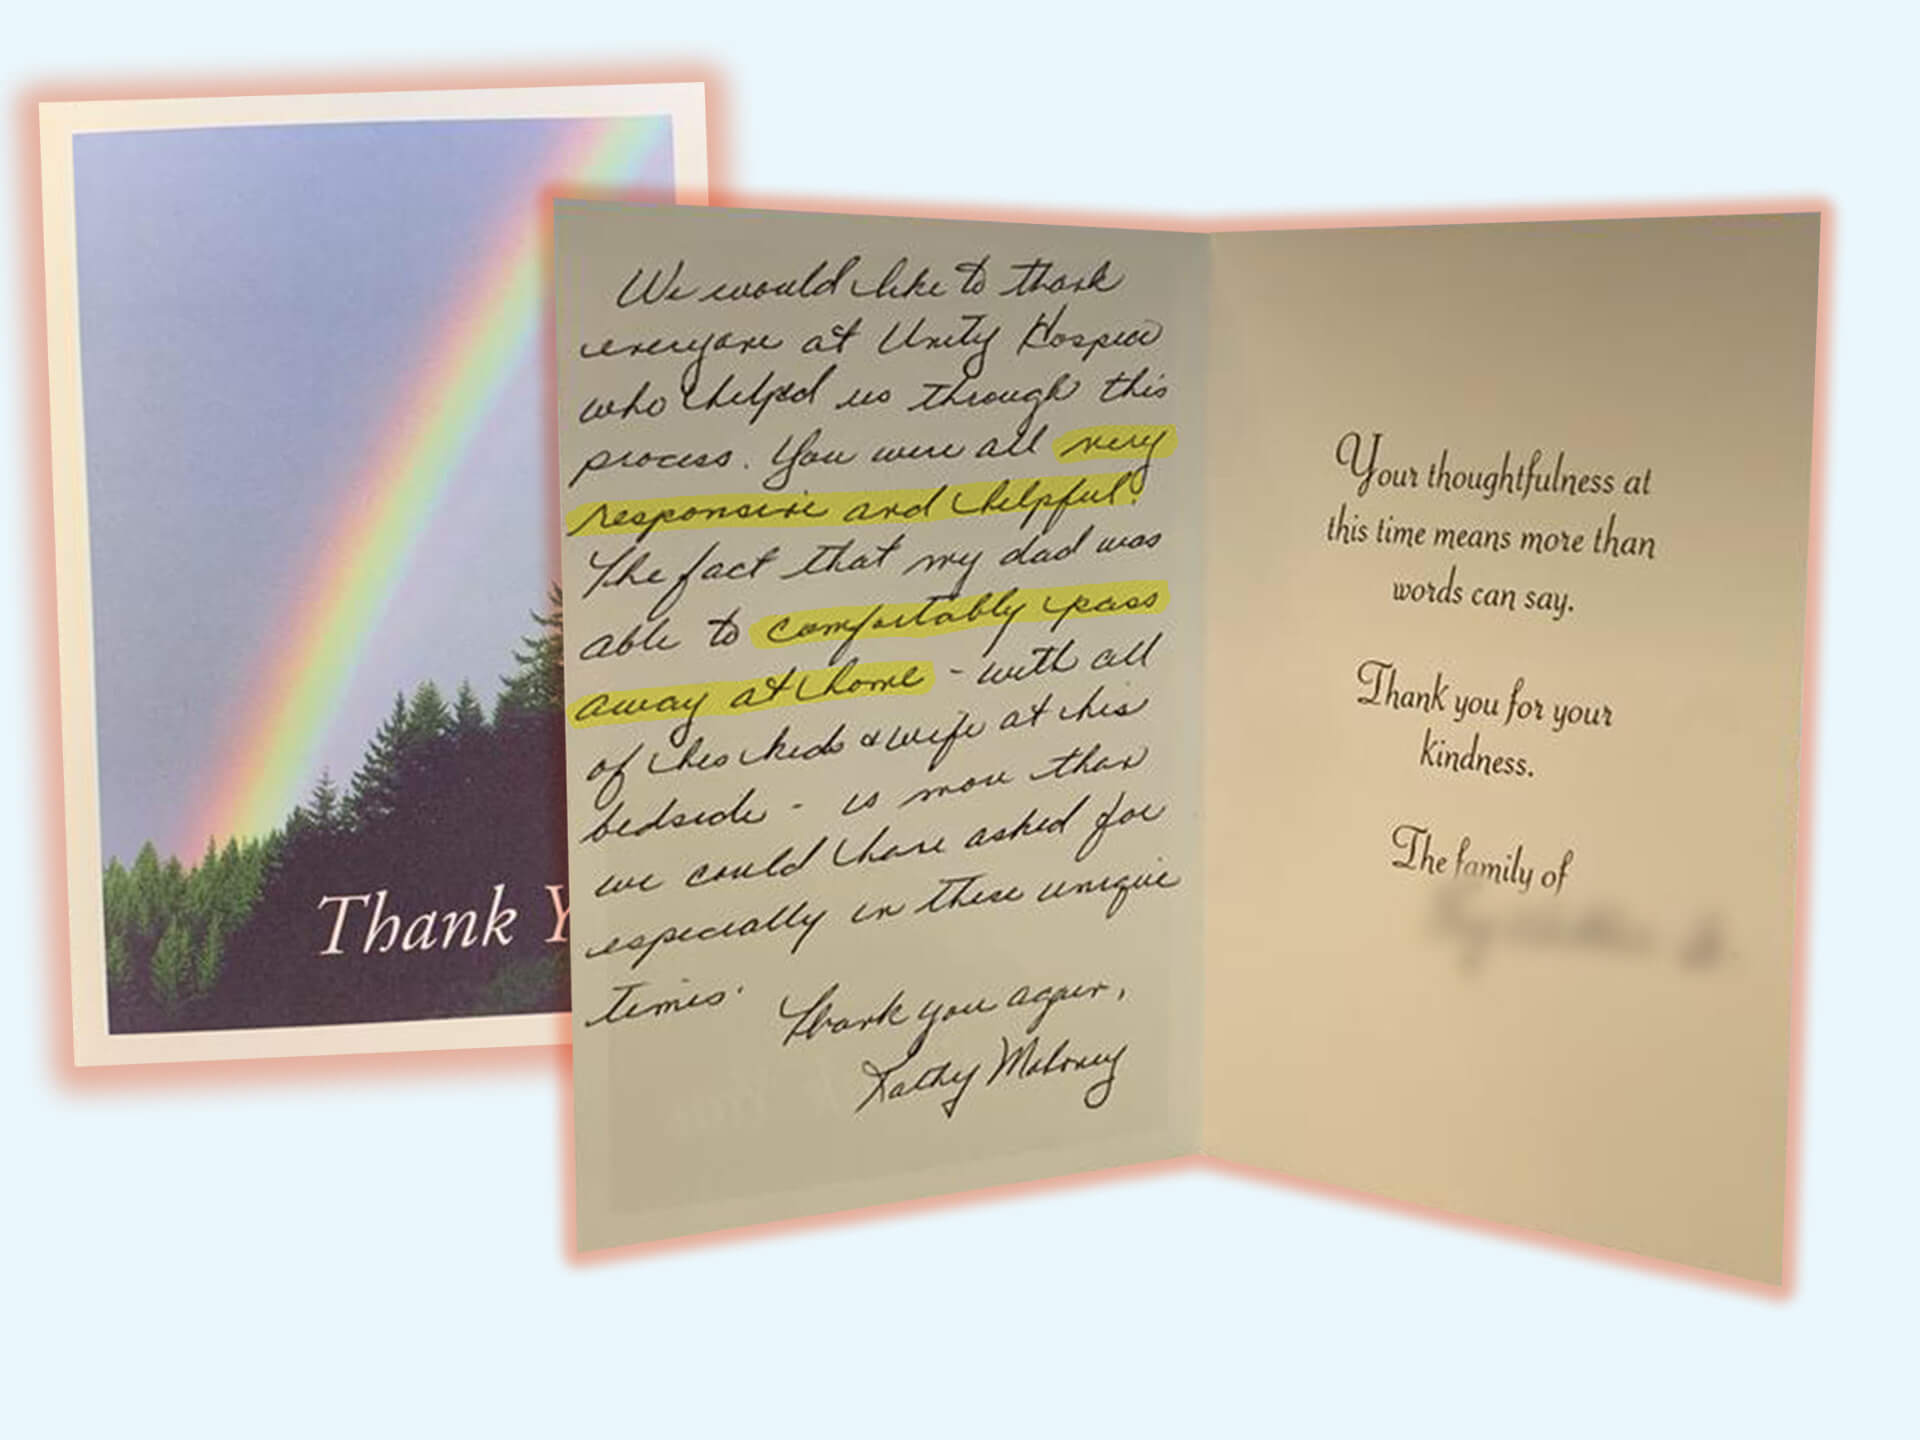 Thank Y
We would like to thank
everyone at Unity Hospice
who helped us through this
process. You were all very
responsive and helpful!
The fact that my dad was
able to comfortably pass
away at home - with all
of his kids & wife at his
bedside - is more than
we could have asked for
especially in these unique
times.
Thank you again,
Kathy Maloney
Your thoughtfulness at
this time means more than
words can say.
Thank you for your
kindness.
The family of